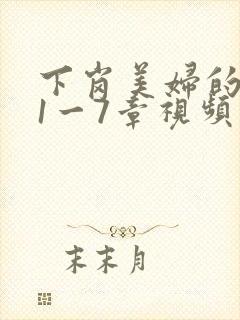 下岗美婦的
1一7章視頻
末末月